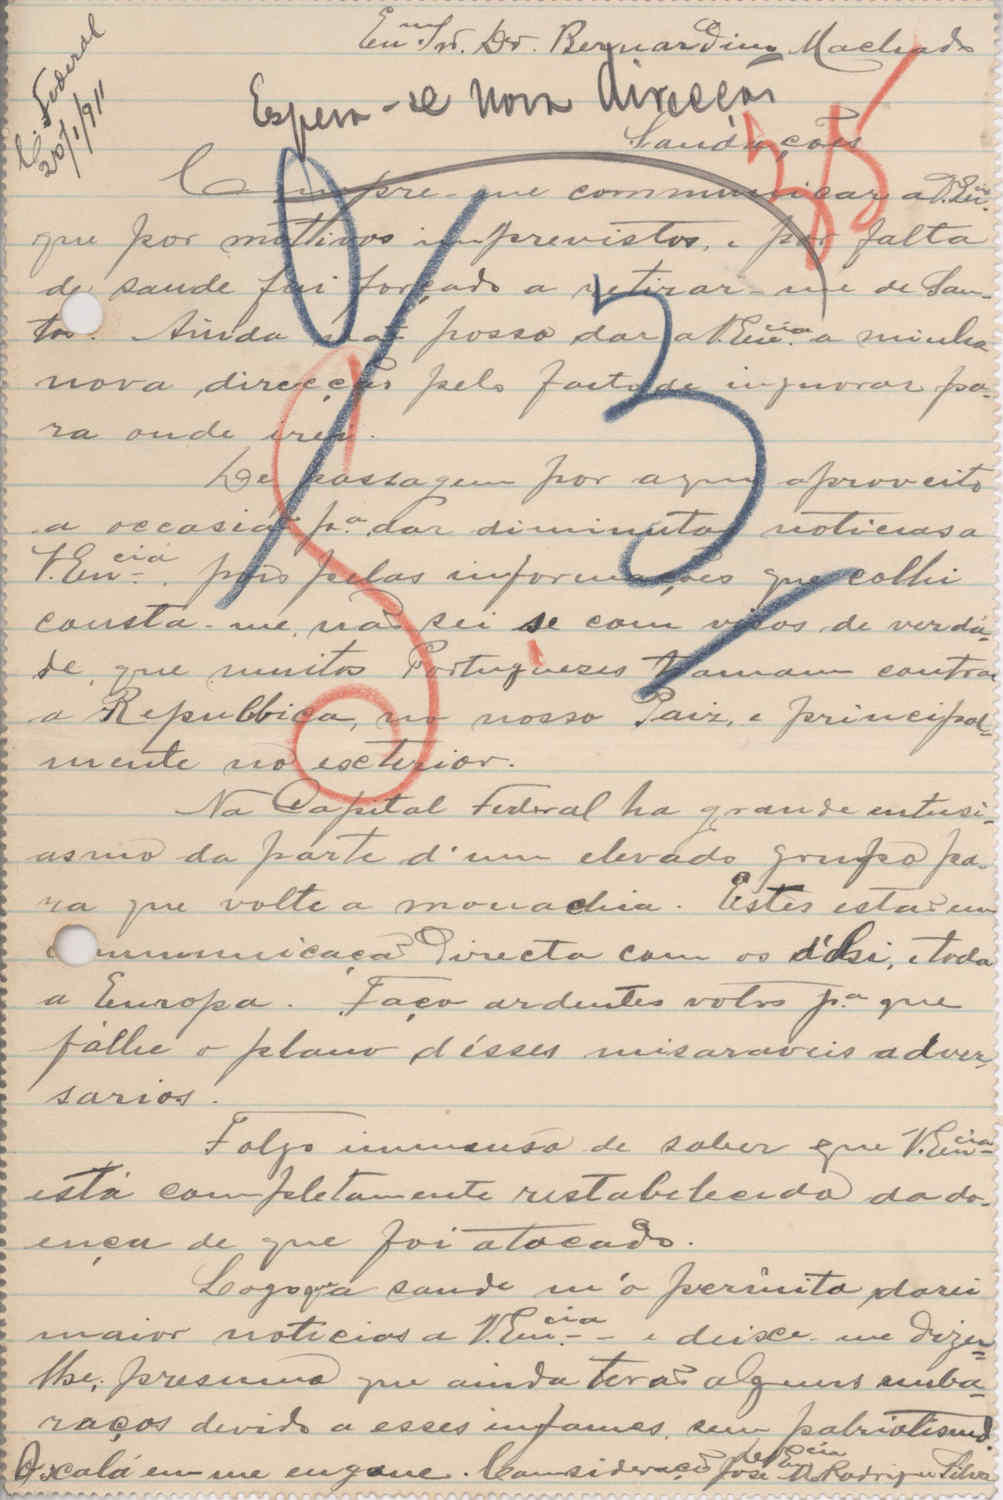 C. Federal
20/1/911
Enmo. Sr. Dr. Bernardino Machado
Espera-se nova direcção
35
Saudações
Cumpre-me communicar a V. Encia.
que por mottivos imprevistos, e por falta
de saude fui forçado a retirar-me de San-
tos. Ainda não posso dar a V. Encia. a minha
nova direcção pelo facto de ingnorar pa-
ra onde irei.
De passagem por aqui aproveito
a occasião pa. dar diminutas noticias a
V. Encia., pois pelas informações que colhi
consta-me, não sei se com visos de verda-
de, que muitos Portuguezes tramam contra
a Republica, no nosso Paiz, e principal-
mente no exterior.
Na Capital Federal ha grande entusi-
asmo da parte d'um elevado grupo pa-
ra que volte a monachia. Estes estão em
communicação directa com os d'ahi, e toda
a Europa. Faço ardentes votos pa. que
falhe o plano d'ésses misaraveis adver-
sarios.
Folgo immenso de saber que V. Encia.
está completamente restabelecido da do-
ença de que foi atacado.
Logo q'a saude m'o permita, darei
maior noticias a V. Encia. - e deixe-me dizer-
lhe, presumo que ainda terão alguns emba-
raços devido a esses infames, sem patriotismo.
Oxcalá em me engane. Consideração
José M. Rodrigues Silva